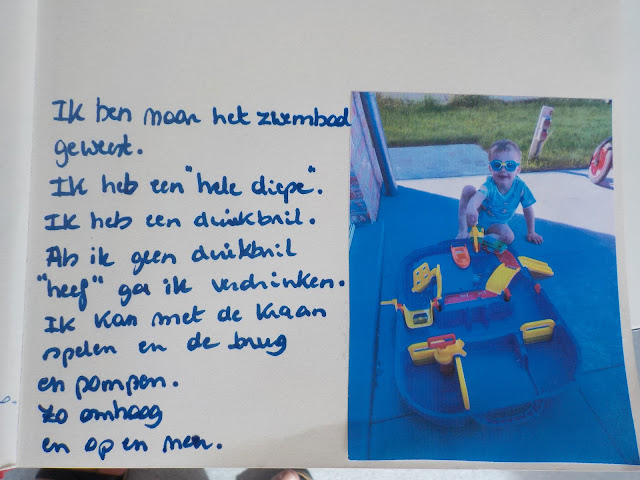 Ik ben naar het zwembad
geweest.
Ik heb een "hele diepe".
Ik heb een duikbril.
Als ik geen duikbril
"heef" ga ik verdrinken.
Ik kan met de kraan
spelen en de brug
en pompen.
Zo omhoog
en op en neer.